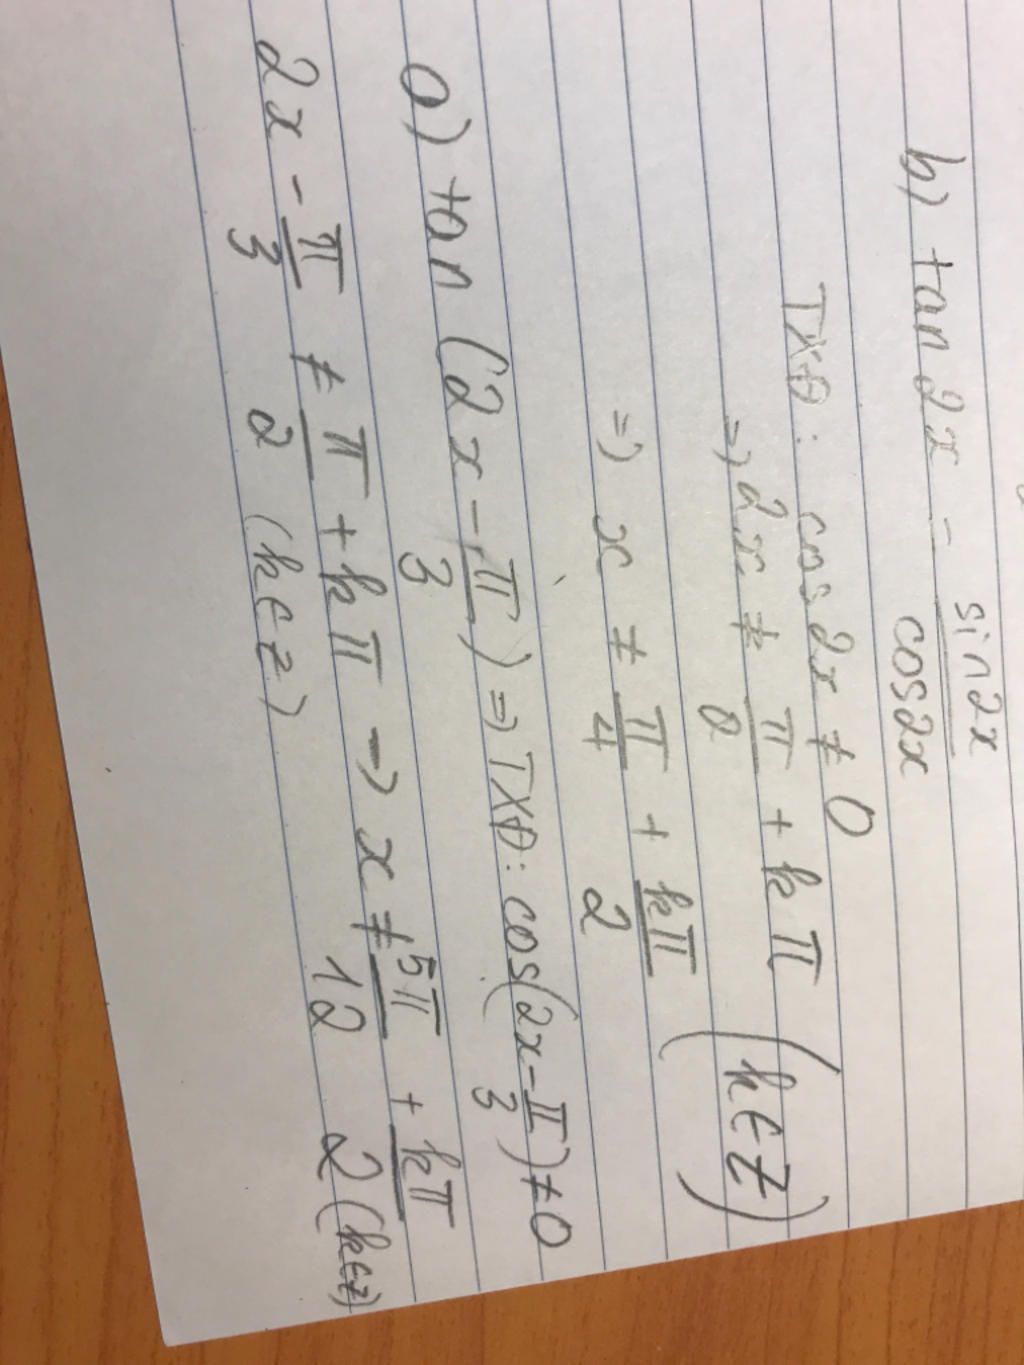 b) tan2x = sin2x/cos2x
TXĐ: cos2x ≠ 0
=> 2x ≠ π/2 + kπ (k∈Z)
=> x ≠ π/4 + kπ/2
a) tan (2x - π/3) => TXĐ: cos(2x - π/3) ≠ 0
2x - π/3 ≠ π/2 + kπ -> x ≠ 5π/12 + kπ/2 (k∈Z)
(k∈Z)